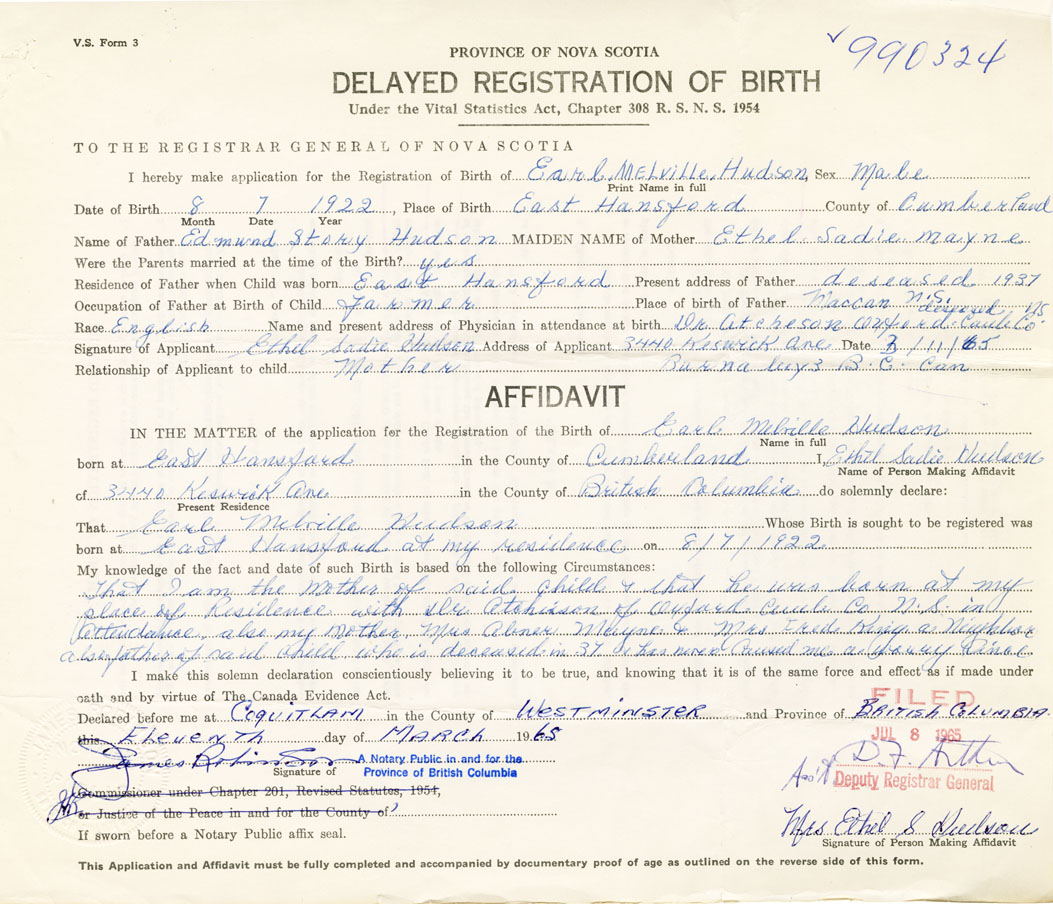 V.S. Form 3
990324
PROVINCE OF NOVA SCOTIA
DELAYED REGISTRATION OF BIRTH
Under the Vital Statistics Act, Chapter 308 R. S. N. S. 1954
TO THE REGISTRAR GENERAL OF NOVA SCOTIA
I hereby make application for the Registration of Birth of Earl MELville Hudson, Sex Male
Print Name in full
Date of Birth 8 7 1922, Place of Birth East Hansford County of Cumberland
Month Date Year
Name of Father Edmund Story Hudson MAIDEN NAME of Mother Ethel Sadie Mayne
Were the Parents married at the time of the Birth? yes
Residence of Father when Child was born East Hansford Present address of Father deseased 1937
Occupation of Father at Birth of Child Farmer Place of birth of Father Maccan N.S.
deseased NS
Race English Name and present address of Physician in attendance at birth Dr Atcheson Oxford Cumb Co
Signature of Applicant Ethel Sadie Hudson Address of Applicant 3440 Keswick Ave Date /11/65
Relationship of Applicant to child Mother Burnaby 3 B.C. Can
AFFIDAVIT
IN THE MATTER of the application for the Registration of the Birth of Earl Melville Hudson
Name in full
born at East Hansford in the County of Cumberland I, Ethel Sadie Hudson
Name of Person Making Affidavit
of 3440 Keswick Ave in the County of British Columbia do solemnly declare:
Present Residence
That Earl Melville Hudson Whose Birth is sought to be registered was
born at East Hansford at my residence on 8/7/1922
My knowledge of the fact and date of such Birth is based on the following Circumstances:
That I am the Mother of said child & that he was born at my
place of Residence with Dr Atchinson of Oxford Cumb Co N.S. in
Attendance, also my Mother, Mrs Abner Mayne & Mrs Fred King a Neighbor
also father of said child who is deseased in 37 & has never caused me a worry since
I make this solemn declaration conscientiously believing it to be true, and knowing that it is of the same force and effect as if made under
oath and by virtue of The Canada Evidence Act.
FILED
Declared before me at COQUITLAM in the County of WESTMINSTER and Province of BRITISH COLUMBIA
this ELEVENTH day of MARCH 1965
JUL 8 1965
James Robinson
Signature of
A Notary Public in and for the
Province of British Columbia
D. F. Arthur
Ass't Deputy Registrar General
Commissioner under Chapter 201, Revised Statutes, 1954,
or Justice of the Peace in and for the County of
If sworn before a Notary Public affix seal.
Mrs Ethel S Hudson
Signature of Person Making Affidavit
This Application and Affidavit must be fully completed and accompanied by documentary proof of age as outlined on the reverse side of this form.